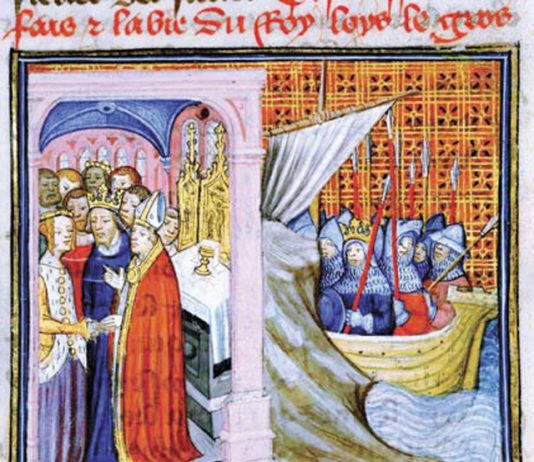 fais ⁊ la vie Du Roy loys le gros